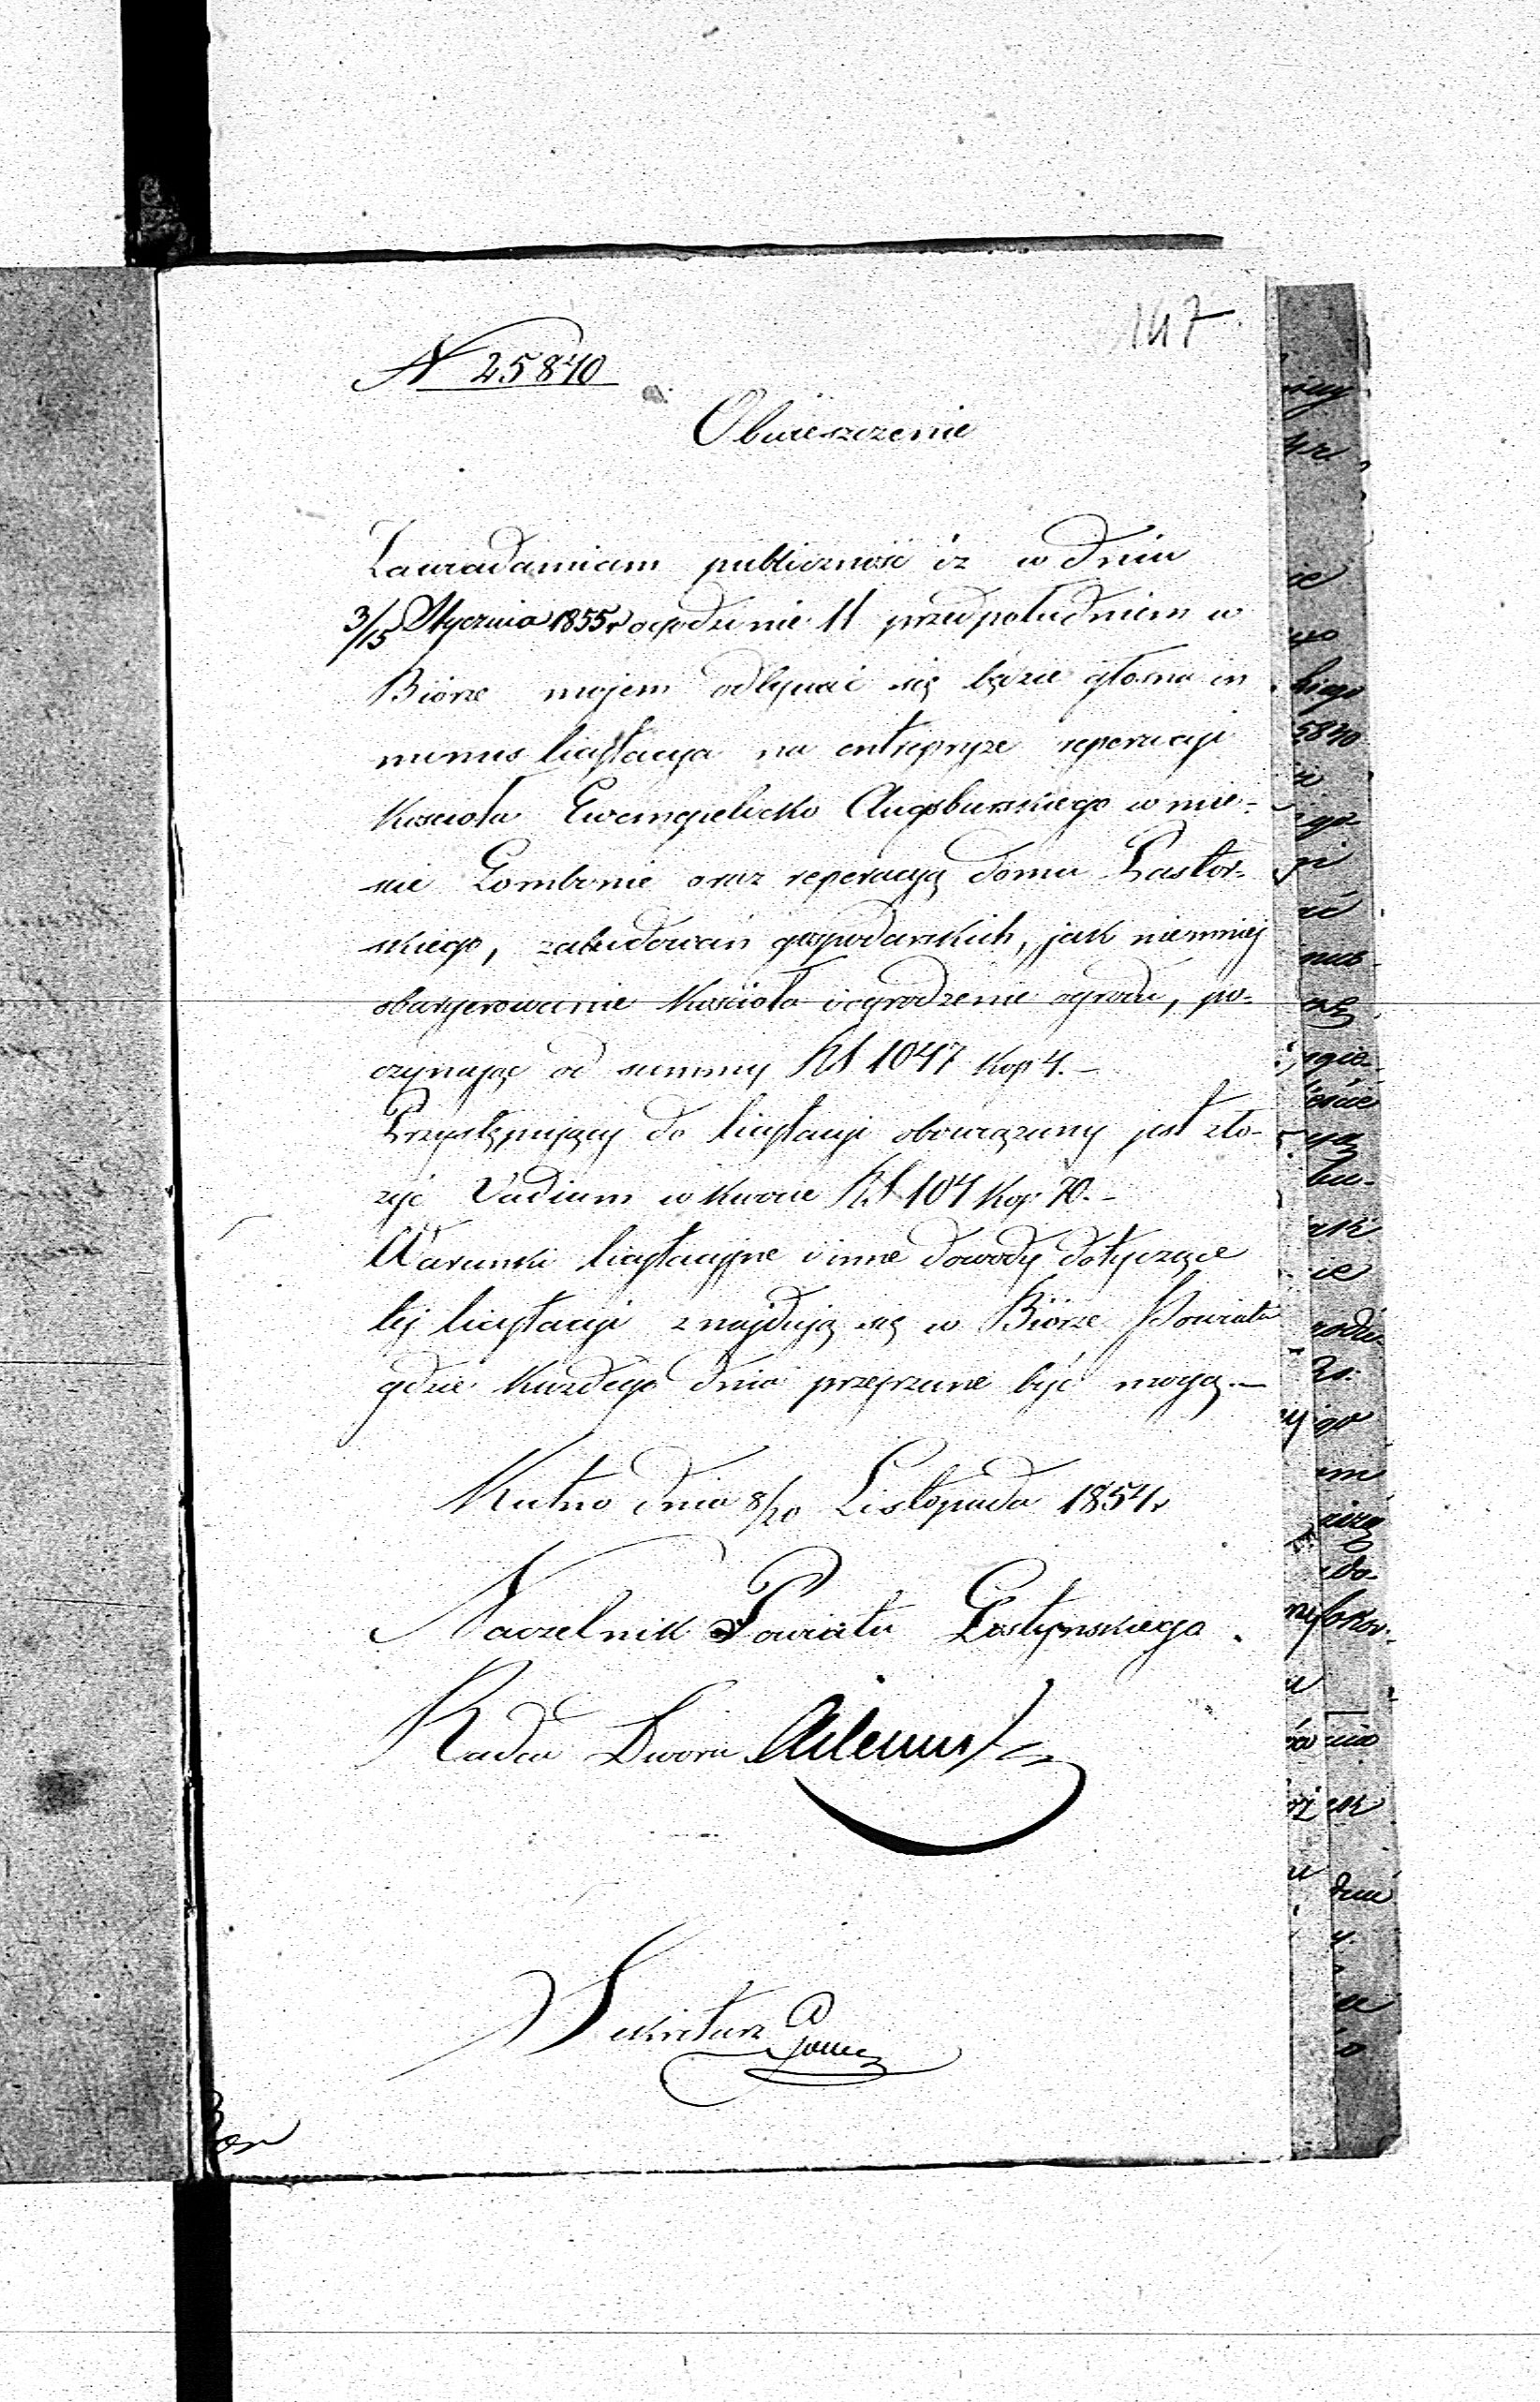 147
N 25840
Obwieszczenie
Zawiadamiam publiczność iż w dniu
3/15 Stycznia 1855r o godzinie 11 przed południem w
Biórze mojem odbywać się będzie głośna in
minus licytacya na entrepryzę reperacyi
Kościoła Ewangelicko Augsburskiego w mie-
ście Gombinie oraz reperacyą domu Pastor-
skiego, zabudowań gospodarskich, jak niemniej
obaryerowanie Kościoła i ogrodzenie ogrodu, po-
czynając od summy RS 1047 Kop 4.-
Przystępujący do licytacyi obowiązany jest zło-
żyć Vadium w kwocie RS 104 Kop 70.-
Warunki licytacyjne i inne dowody dotyczące
tej licytacyi znajdują się w Biórze Powiatu
gdzie każdego dnia przejrzane być mogą.-
Kutno dnia 8/20 Listopada 1854r
Naczelnik Powiatu Gostyńskiego.
Radca Dworu
Sekretarz